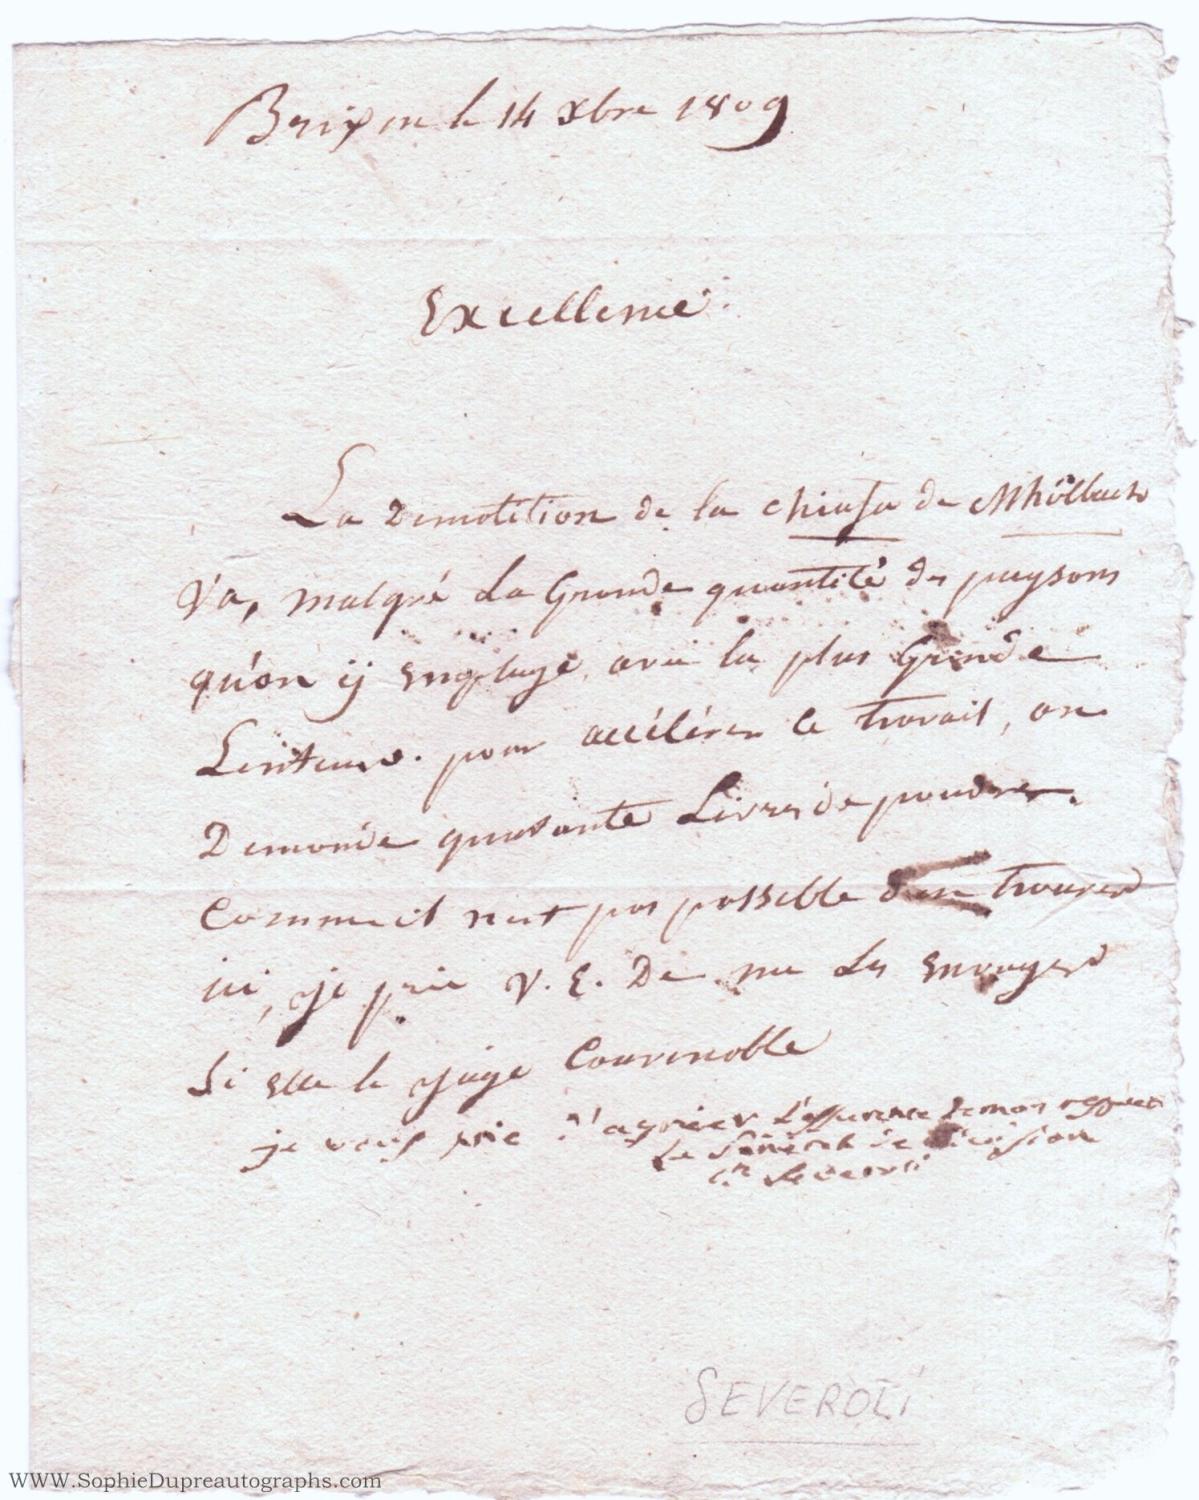 Brixen le 14 Xbre 1809
Excellence.
La Demolition de la chiusa de Mhölbach
Va, malgré La Grande quantité des paysans
qu'on ÿ Employe, avec la plus Grande
Lenteur. pour accélérer le travail, on
Demande quarante Livres de poudre.
Comme il n'est pas possible d'en trouver
ici, je prie V. E. De me les Envoyer
Si elle le Juge Convenable
je vous prie d'agréer L'assurence de mon respect
Le Général de Division
Severoli
SEVEROLI
WWW.SophieDupreautographs.com